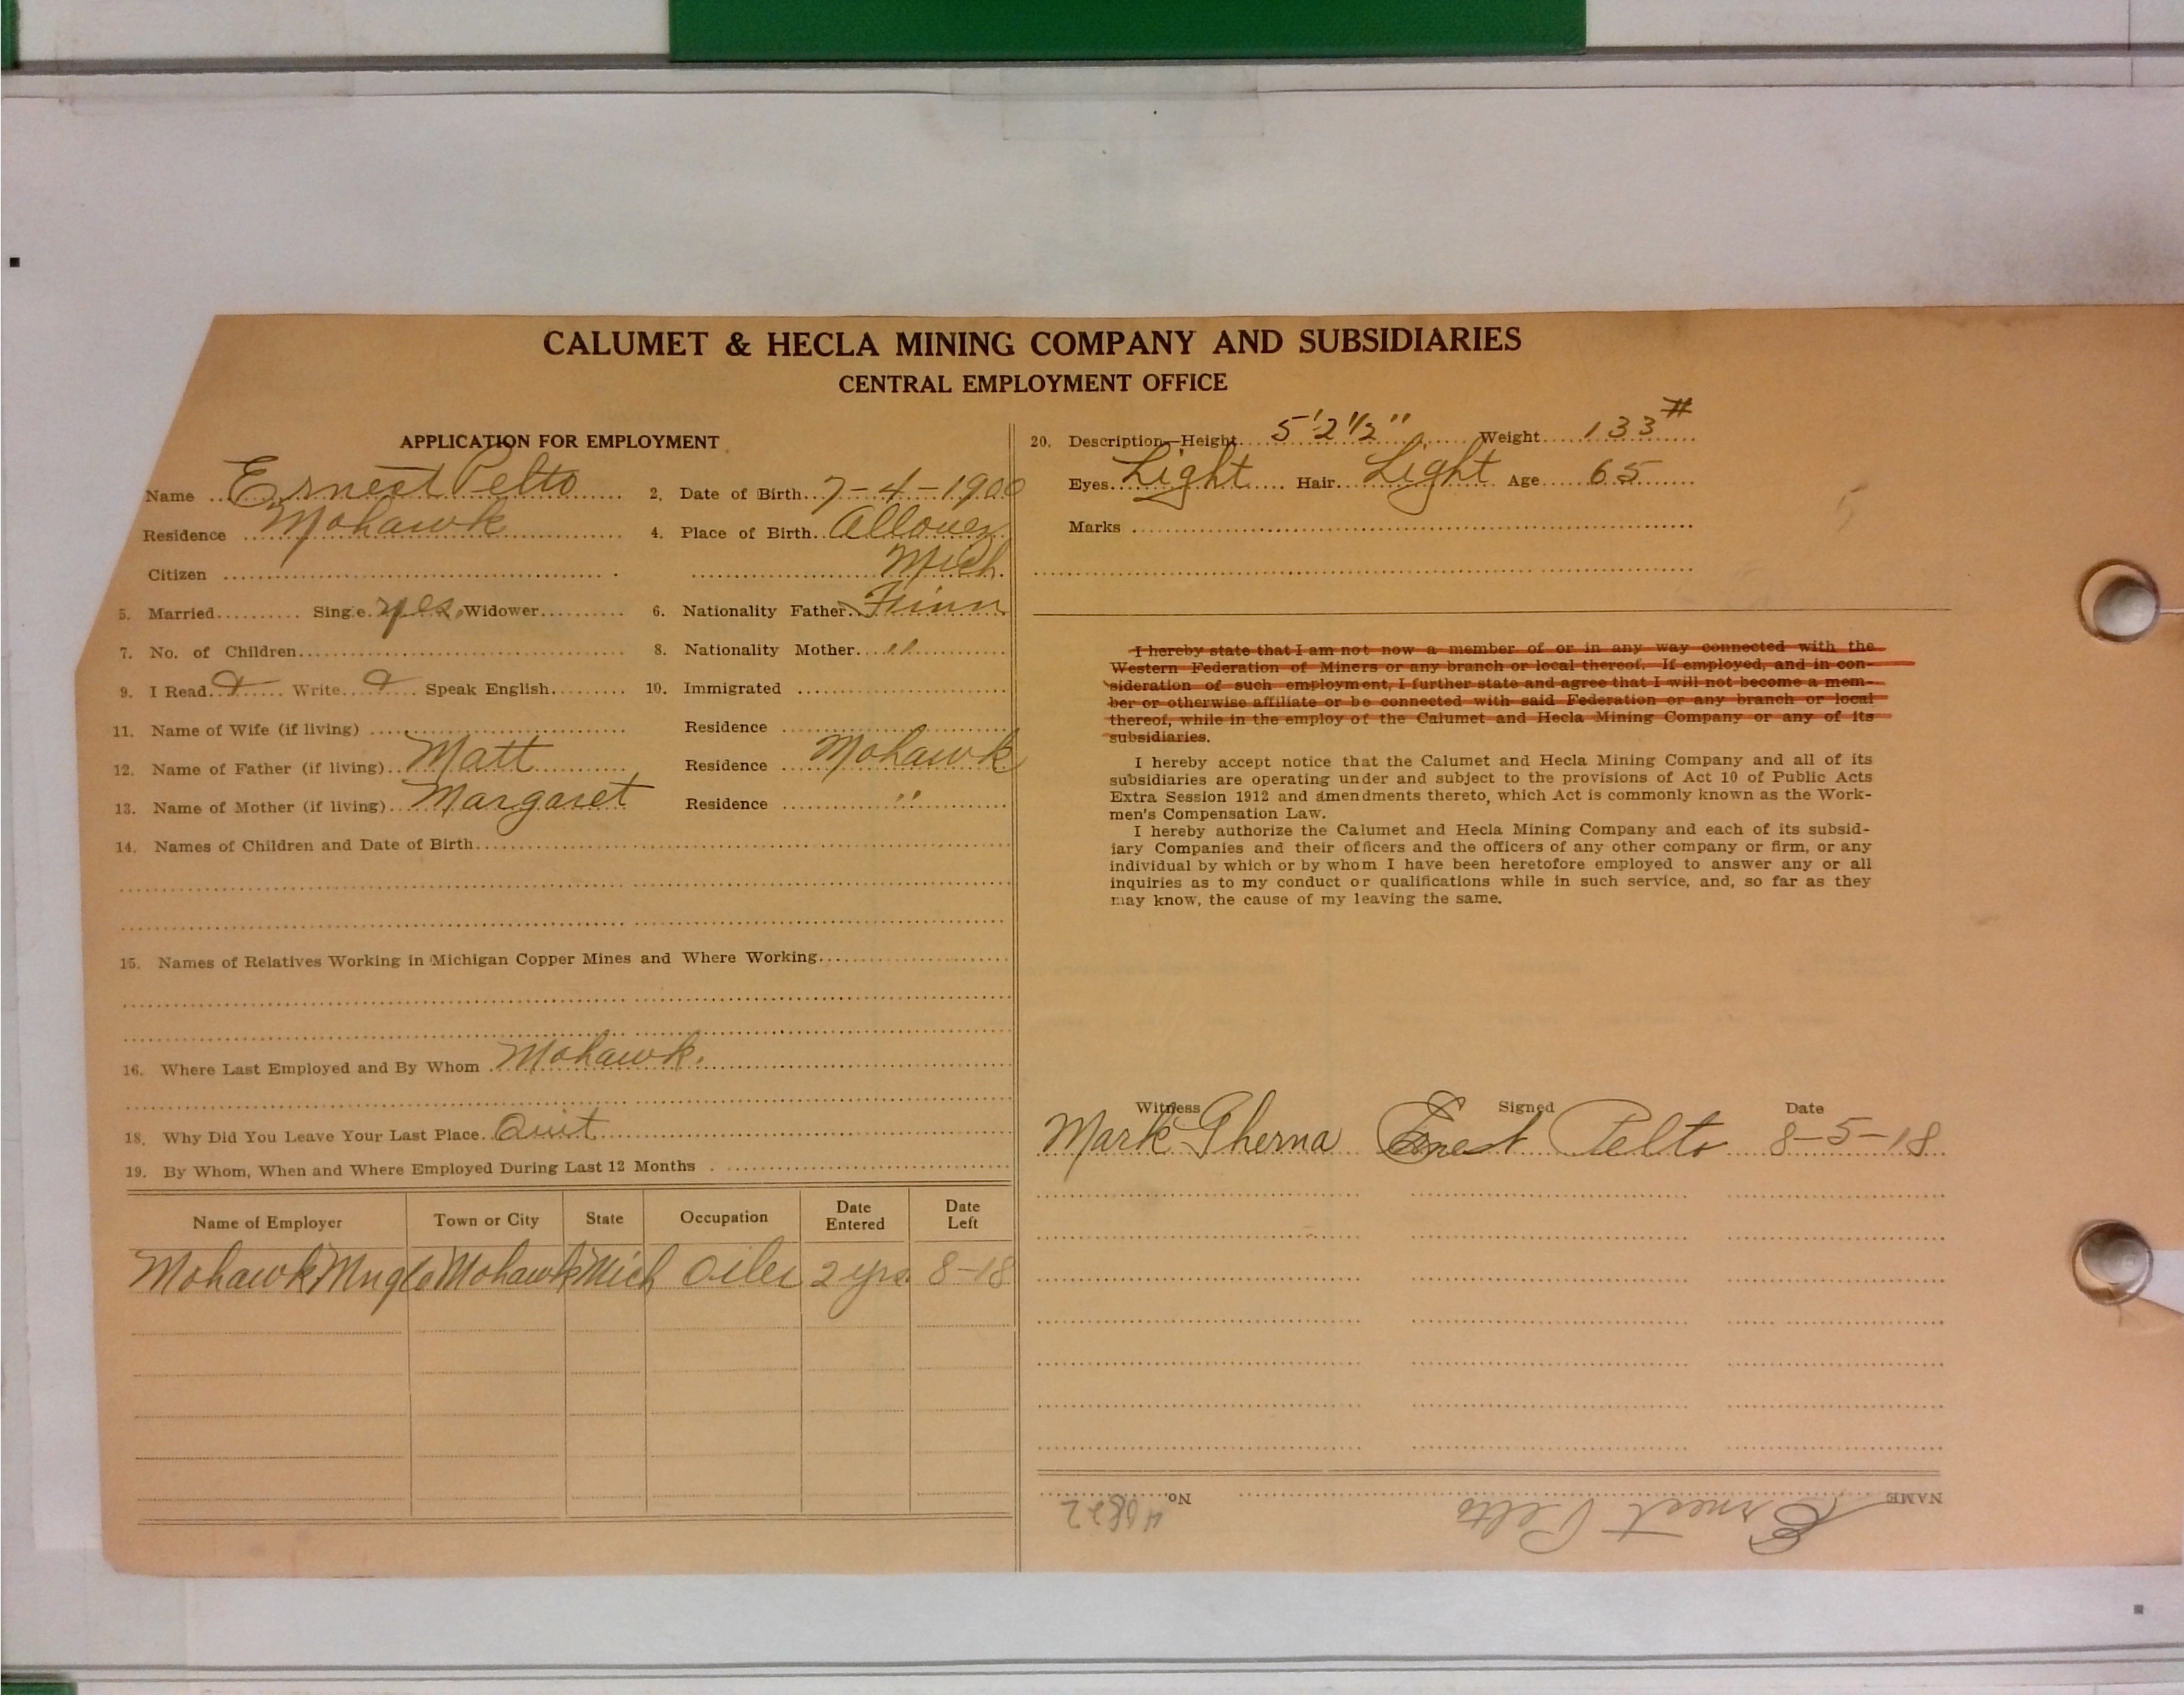 CALUMET & HECLA MINING COMPANY AND SUBSIDIARIES
CENTRAL EMPLOYMENT OFFICE
APPLICATION FOR EMPLOYMENT
Name Ernest Pelto
2. Date of Birth 7-4-1900
Residence Mohawk
4. Place of Birth Allouez
Citizen
Mich.
5. Married Single yes Widower
6. Nationality Father Finn
7. No. of Children
8. Nationality Mother "
9. I Read Write Speak English
10. Immigrated
11. Name of Wife (if living) Residence
12. Name of Father (if living) Matt Residence Mohawk
13. Name of Mother (if living) Margaret Residence "
14. Names of Children and Date of Birth
15. Names of Relatives Working in Michigan Copper Mines and Where Working
16. Where Last Employed and By Whom Mohawk.
18. Why Did You Leave Your Last Place Quit
19. By Whom, When and Where Employed During Last 12 Months
Name of Employer Town or City State Occupation Date Entered Date Left
Mohawk Mng Co Mohawk Mich Oiler 2 yrs 8-18
20. Description—Height 5'2 1/2" Weight 133#
Eyes Light Hair Light Age 65
Marks
5
I hereby state that I am not now a member of or in any way connected with the
Western Federation of Miners or any branch or local thereof. If employed, and in con-
sideration of such employment, I further state and agree that I will not become a mem-
ber or otherwise affiliate or be connected with said Federation or any branch or local
thereof, while in the employ of the Calumet and Hecla Mining Company or any of its
subsidiaries.
I hereby accept notice that the Calumet and Hecla Mining Company and all of its
subsidiaries are operating under and subject to the provisions of Act 10 of Public Acts
Extra Session 1912 and amendments thereto, which Act is commonly known as the Work-
men's Compensation Law.
I hereby authorize the Calumet and Hecla Mining Company and each of its subsid-
iary Companies and their officers and the officers of any other company or firm, or any
individual by which or by whom I have been heretofore employed to answer any or all
inquiries as to my conduct or qualifications while in such service, and, so far as they
may know, the cause of my leaving the same.
Witness Signed Date
Mark Gherna Ernest Pelto 8-5-18
NAME Ernest Pelto No. 40822